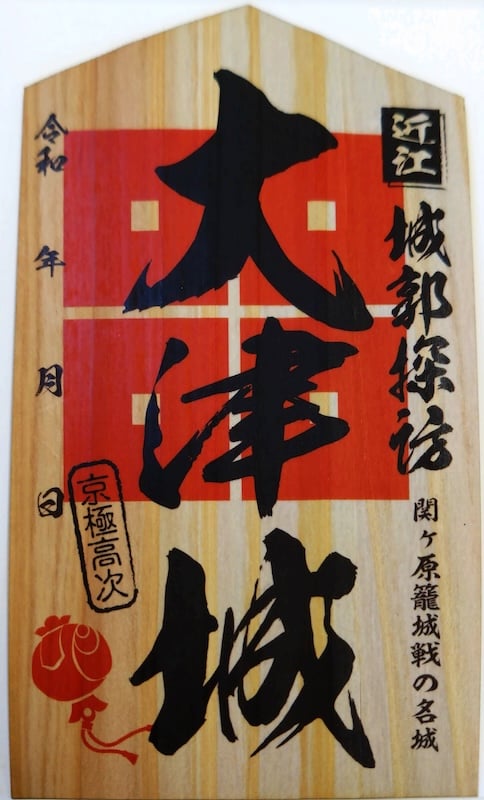 近江
城郭探訪
関ヶ原籠城戦の名城
大津城
令和 年 月 日
京極高次